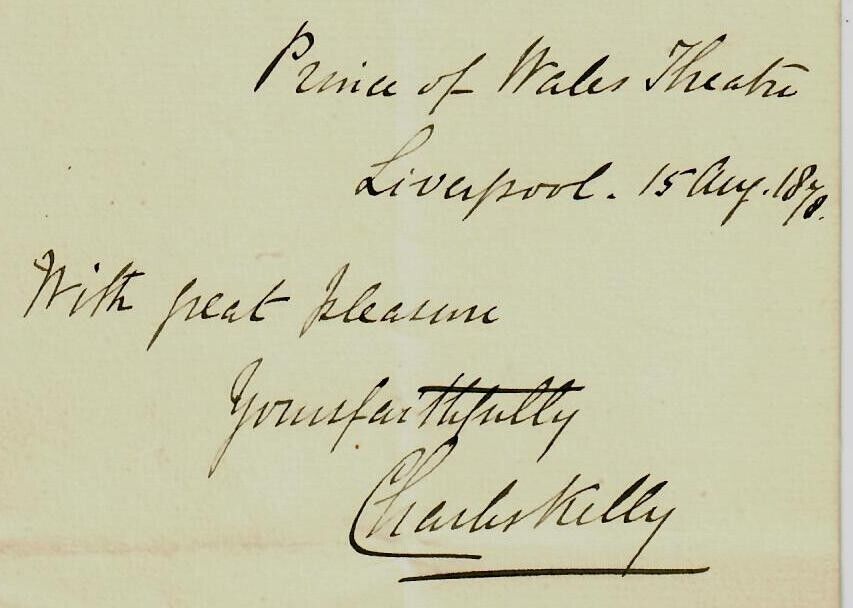 Prince of Wales Theatre
Liverpool. 15 Aug. 1878.
With great pleasure
Yours faithfully
Charles Kelly